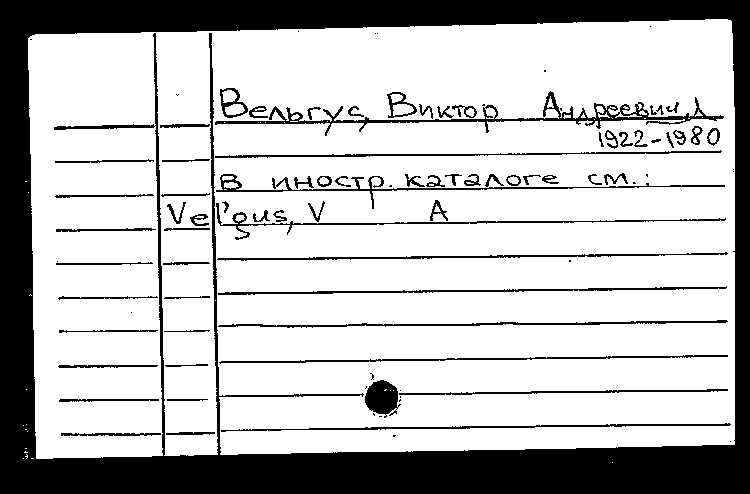 Вельгус, Виктор Андреевич,
1922-1980
В иностр. каталоге см.:
Vel'gus, V A